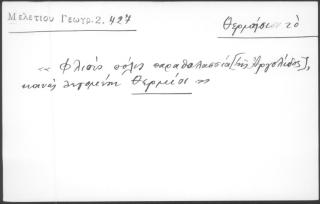 Μελετίου Γεωγρ. 2. 427
Θερμήσιον τὸ
« Φλιοῦς πόλις παραθαλασσία [τῆς Ἀργολίδος],
κοινῶς λεγομένη Θερμίσι »